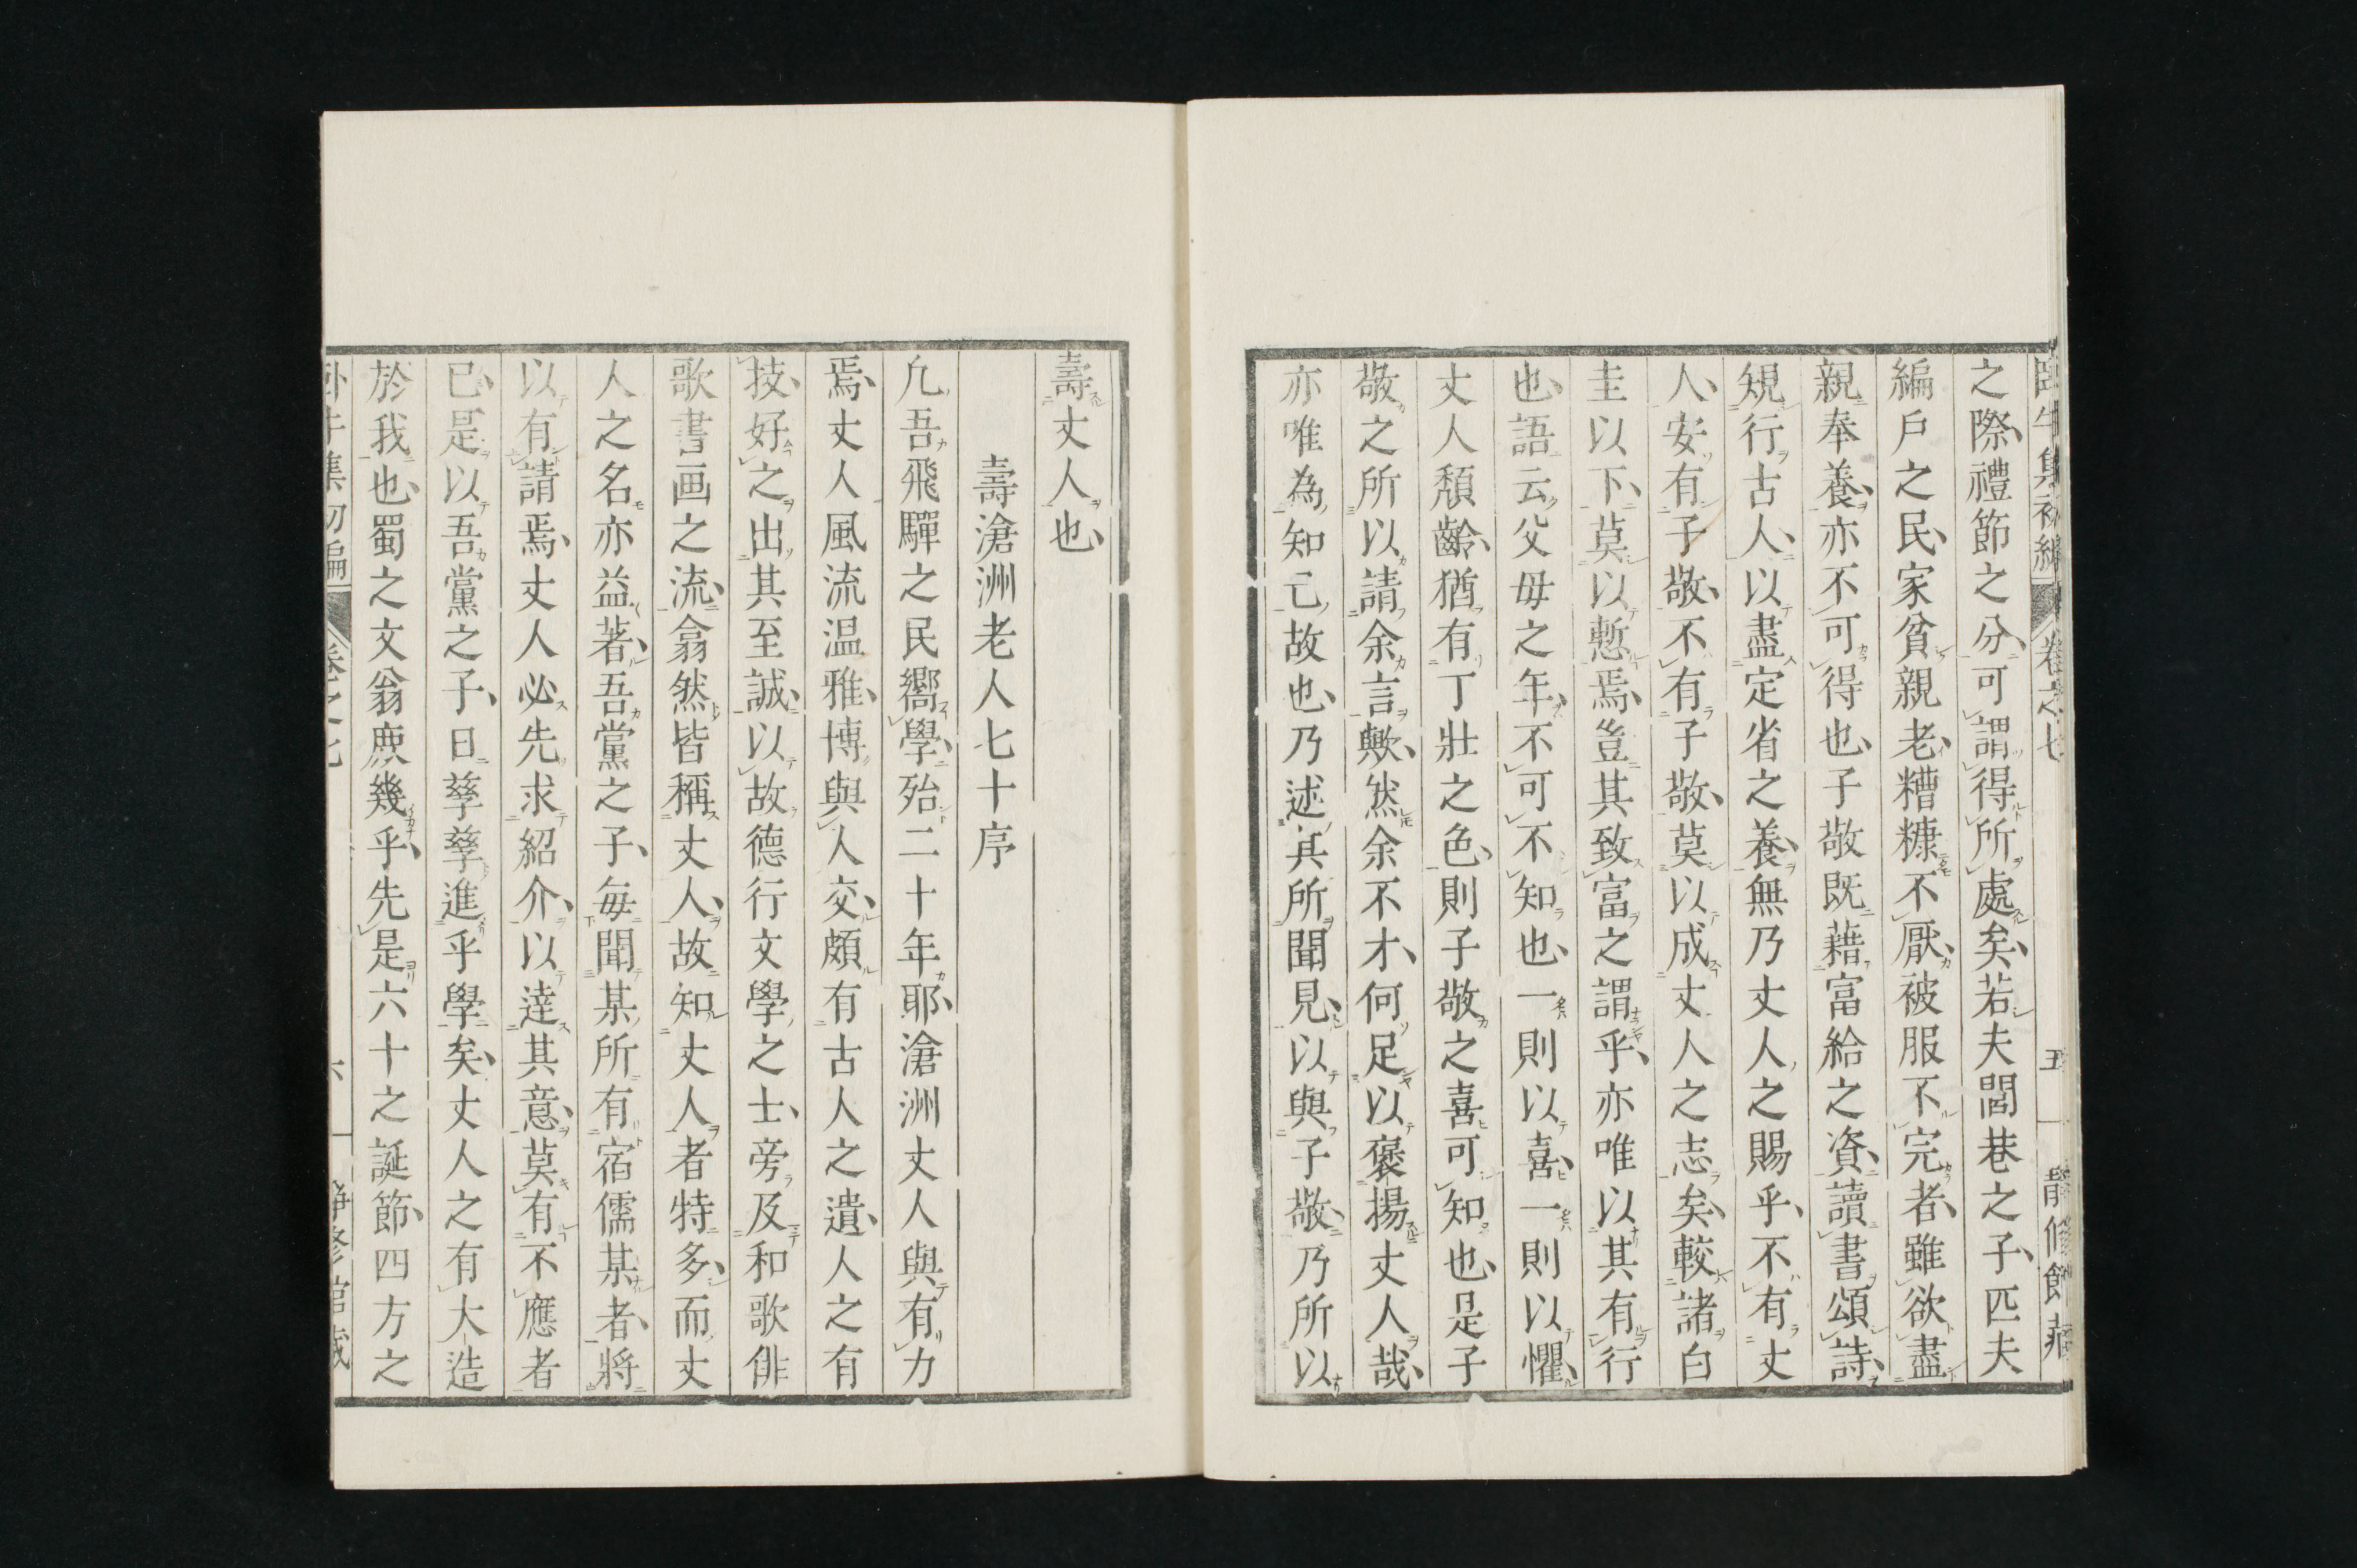 臥牛集初編 卷之七 五 靜修館藏
之際禮節之分可謂得所處矣若夫閭巷之子匹夫
編戶之民家貧親老糟糠不厭被服不完者雖欲盡
親奉養亦不可得也子敬既藉富給之資讀書頌詩
規行古人以盡定省之養無乃丈人之賜乎不有丈
人安有子敬不有子敬莫以成丈人之志矣較諸白
圭以下莫以慙焉豈其致富之謂乎亦唯以其有行
也語云父母之年不可不知也一則以喜一則以懼
丈人頽齡猶有丁壯之色則子敬之喜可知也是子
敬之所以請余言歟然余不才何足以褒揚丈人哉
亦唯為知己故也乃述其所聞見以與子敬乃所以
壽丈人也
壽滄洲老人七十序
凢吾飛驒之民嚮學殆二十年耶滄洲丈人與有力
焉丈人風流温雅博與人交頗有古人之遺人之有
技好之出其至誠以故德行文學之士旁及和歌俳
歌書画之流翕然皆稱丈人故知丈人者特多而丈
人之名亦益著吾黨之子每聞某所有宿儒某者將
以有請焉丈人必先求紹介以達其意莫有不應者
已是以吾黨之子日孳孳進乎學矣丈人之有大造
於我也蜀之文翁庶幾乎先是六十之誕節四方之
臥牛集初編 卷之七 六 靜修館藏